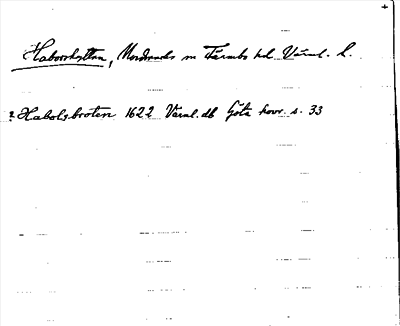 Haborshyttan, Nordmarks sn Färnebo hd Värml. l.
? Habolsbroten 1622 Värml. db Göta hovr. s. 33